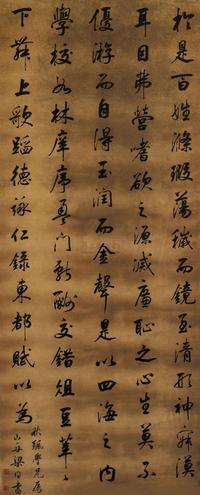 於是百姓滌瑕蕩穢而鏡至清形神寂漠
耳目弗營嗜欲之源滅廉恥之心生莫不
優游而自得玉潤而金聲是以四海之内
學校如林庠序盈門獻酬交錯俎豆莘〻
下舞上歌蹈德詠仁錄東都賦以為
學兄屬
山舟梁同書